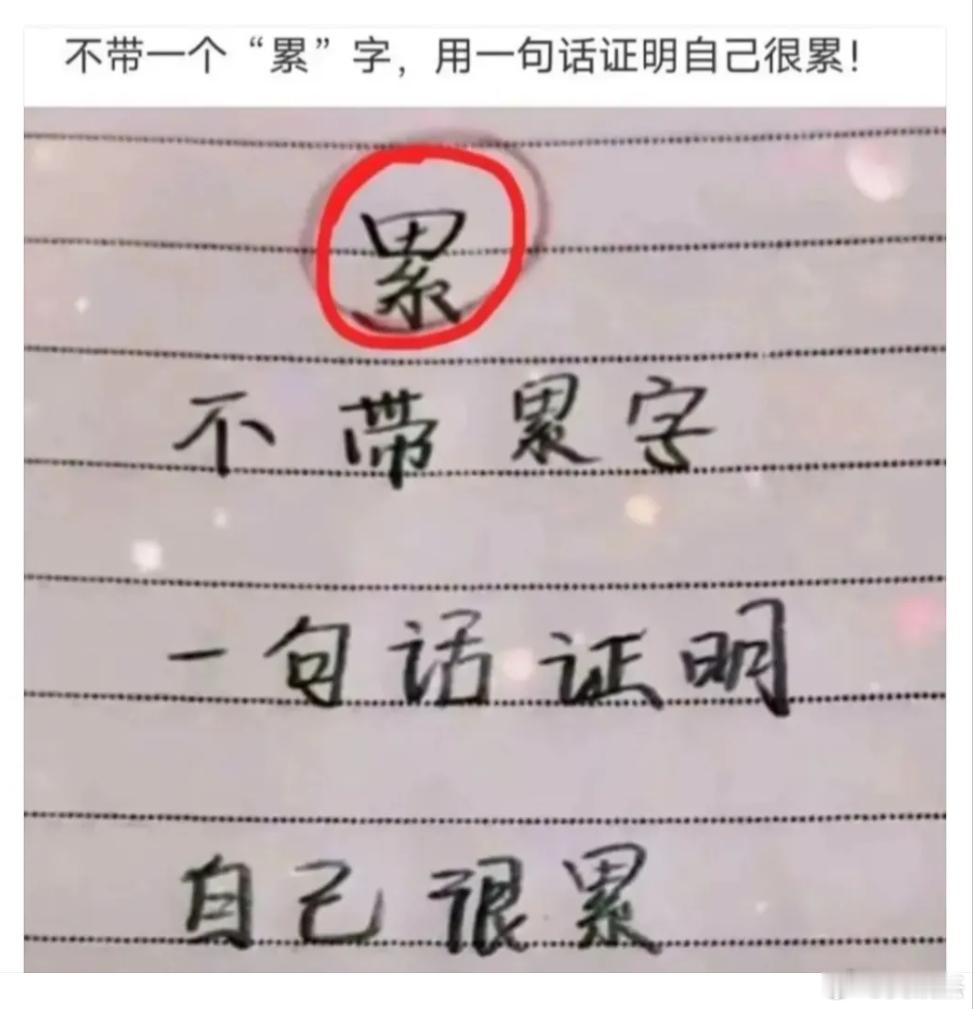 不带一个“累”字，用一句话证明自己很累！
累
不带累字
一句话证明
自己很累